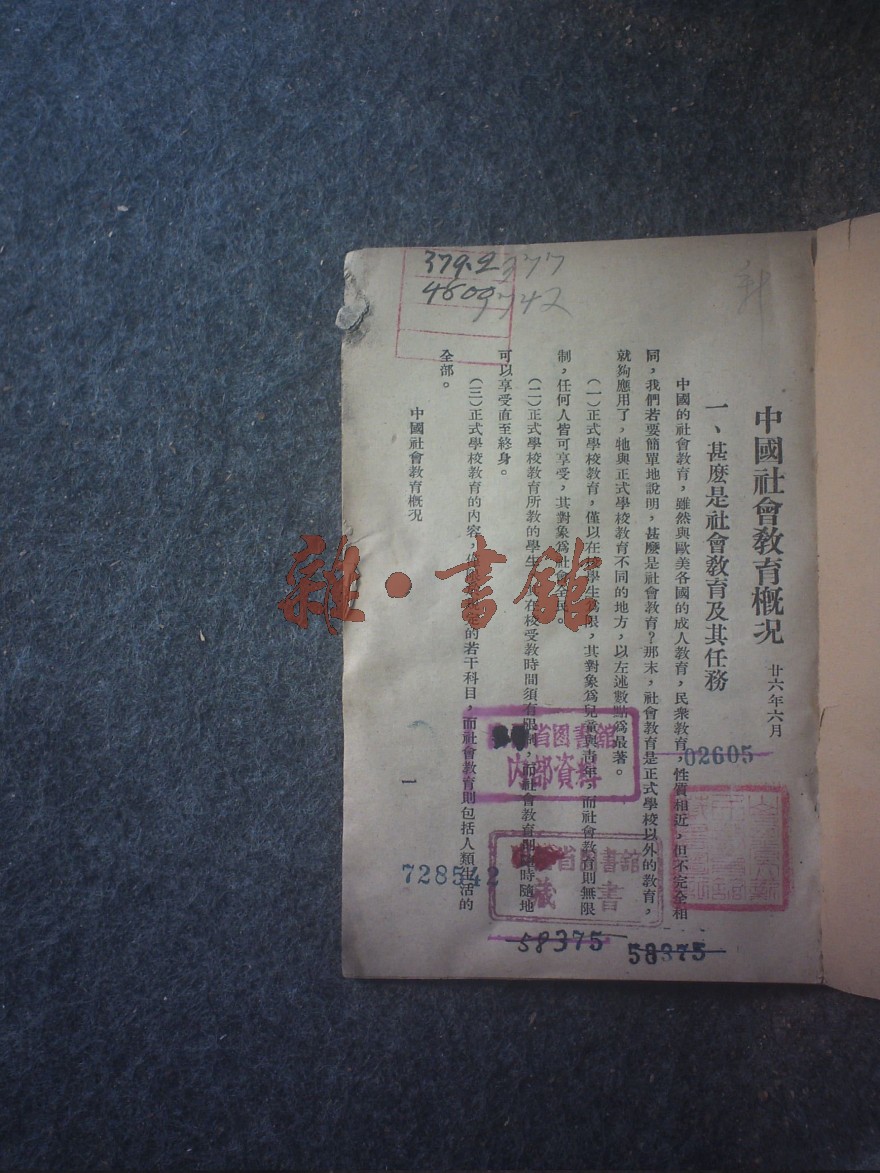 中國社會敎育槪況
廿六年六月
一、甚麽是社會敎育及其任務
中國的社會敎育，雖然與歐美各國的成人敎育，民衆敎育，性質相近，但不完全相
同，我們若要簡單地說明，甚麽是社會敎育？那末，社會敎育是正式學校以外的敎育，
就夠應用了，牠與正式學校敎育不同的地方，以左述數點爲最著。
（一）正式學校敎育，僅以在校學生爲限，其對象爲兒童與靑年，而社會敎育則無限
制，任何人皆可享受，其對象爲社會全民。
（二）正式學校敎育所敎的學生，在校受敎時間須有限制，而社會敎育則隨時隨地
可以享受直至終身。
（三）正式學校敎育的內容，的若干科目，而社會敎育則包括人類生活的
全部。
中國社會敎育槪况
一
379.2
377
4600
742
02605
省图書館
内部資料
省图書館
藏書
728542
58375
58375
雜·書館